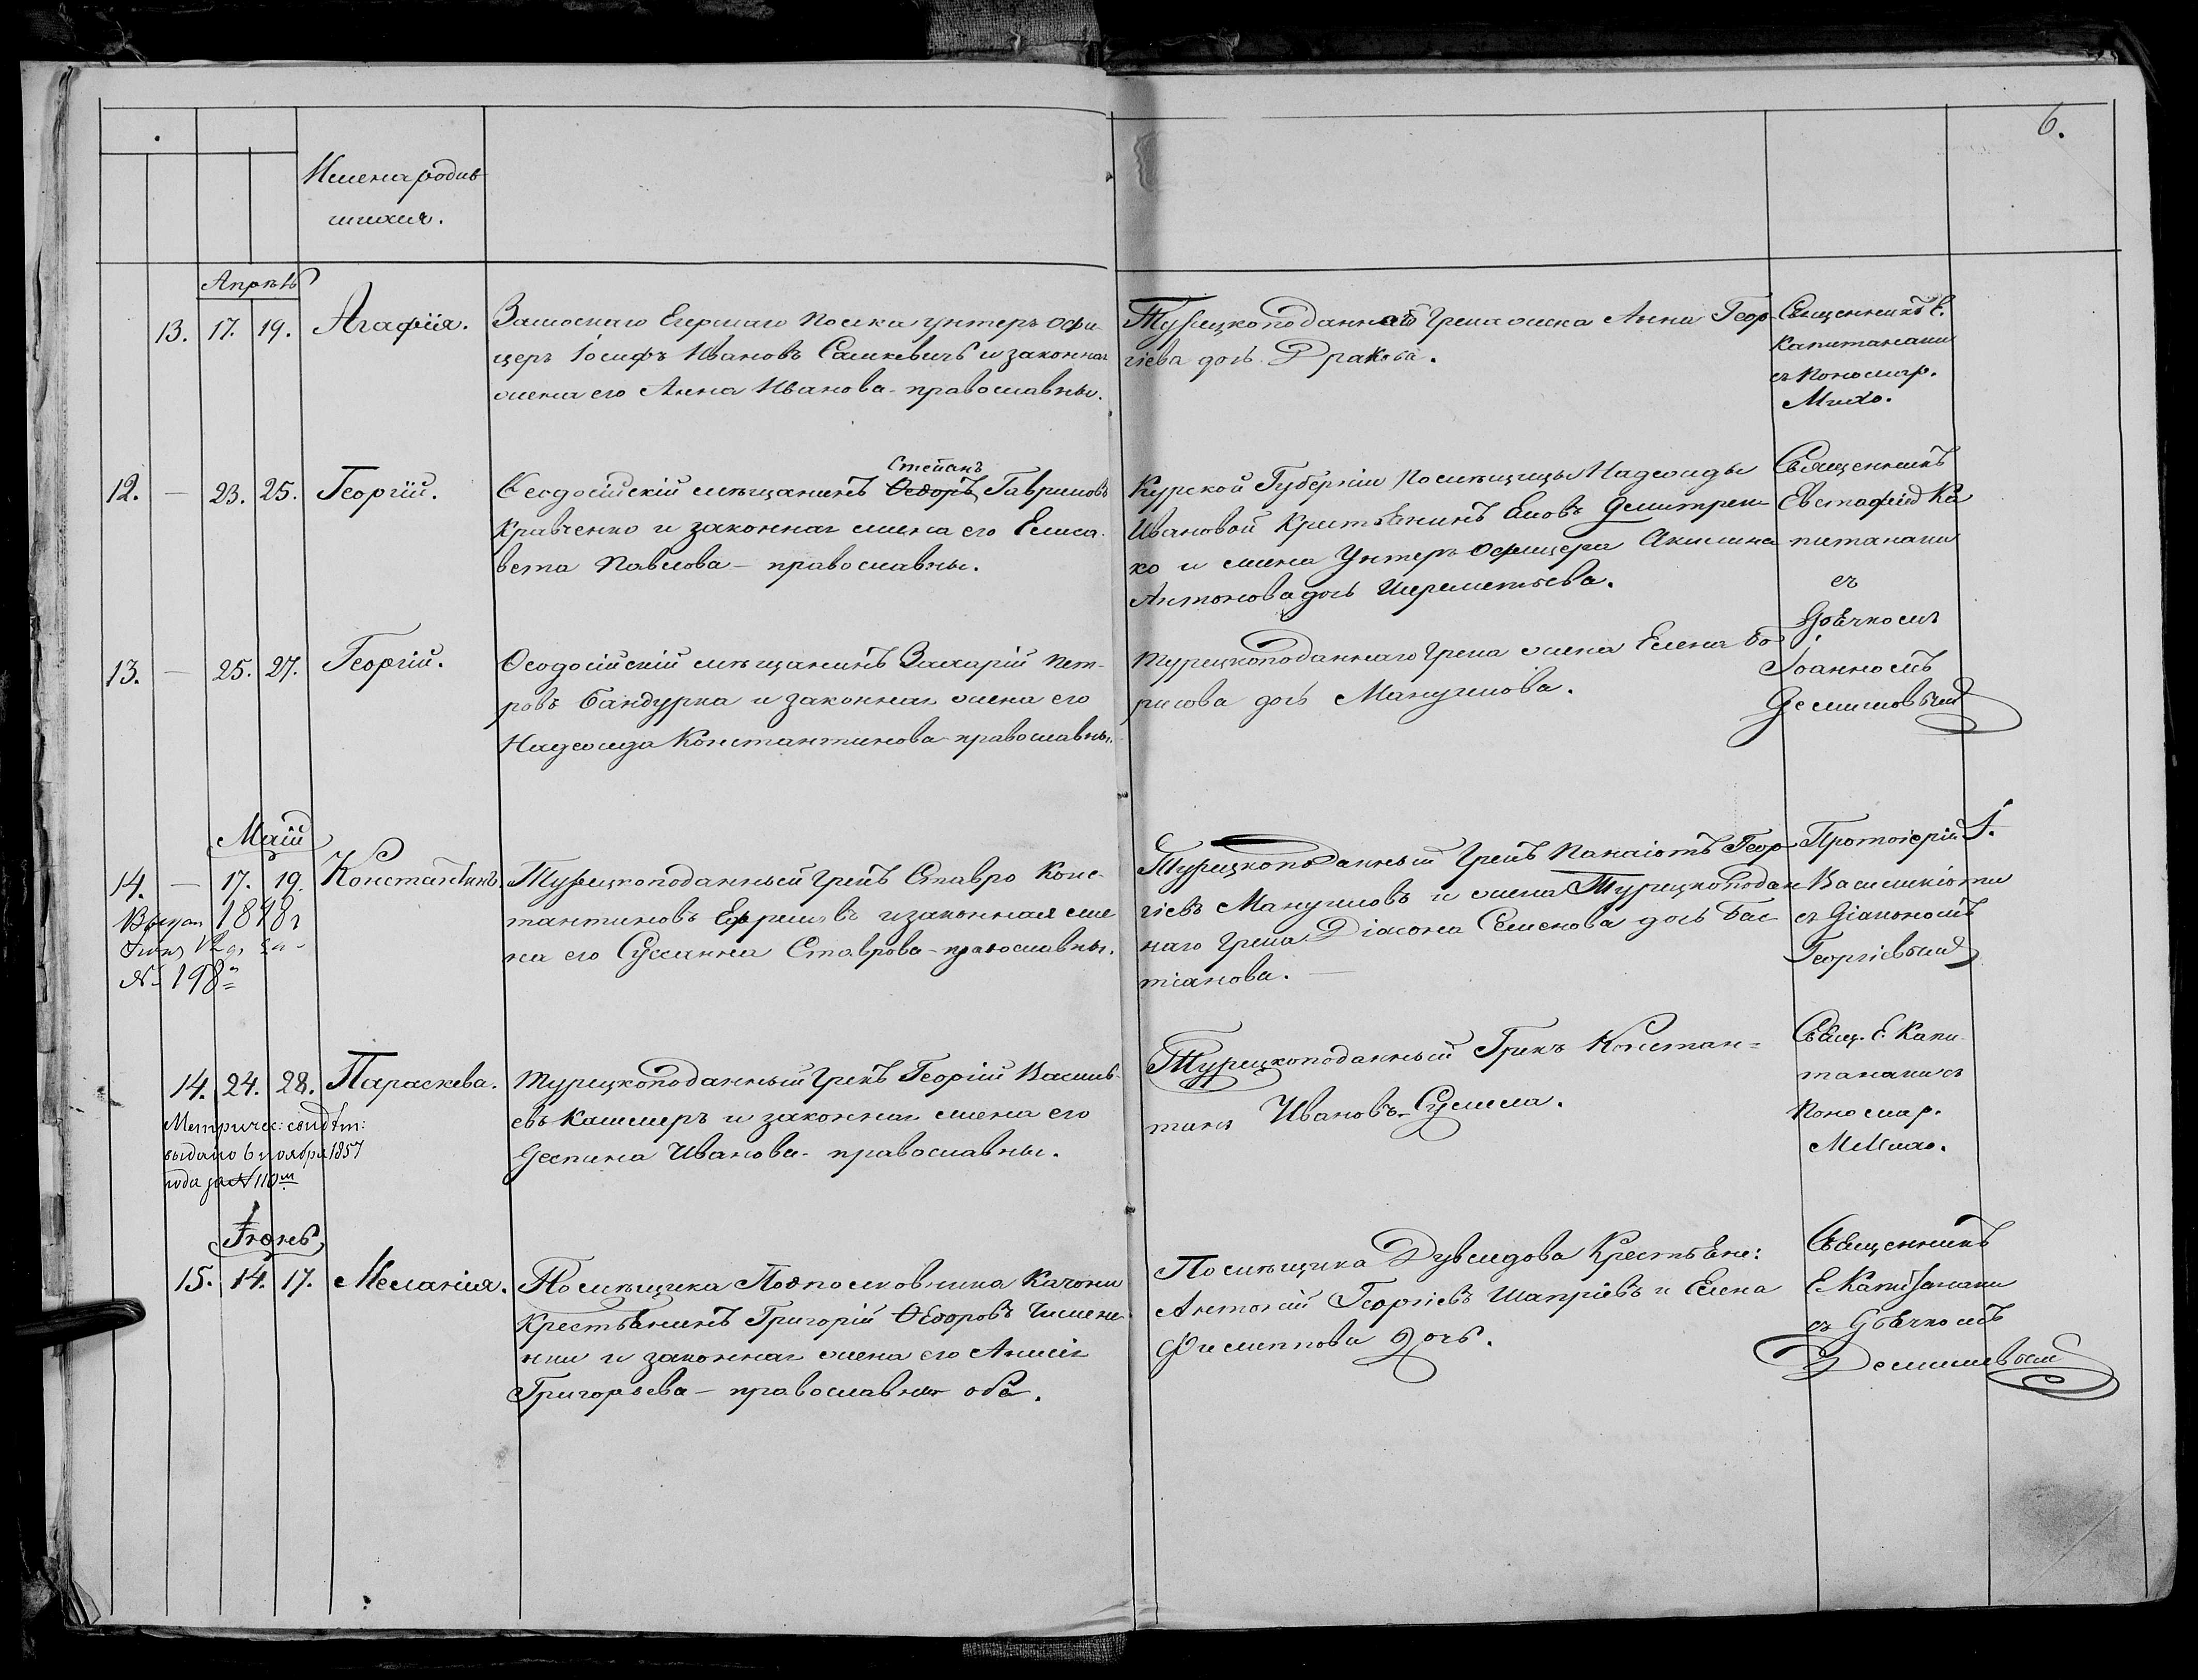 6.
Имена родив
шихся.
Апрѣль
13. 17. 19. Агафiя.
Егерскаго Полка унтеръ офи-
церъ Іосифъ Ивановъ Самкевичь и законная
жена его Анна Иванова - православны.
Турецкоподаннаго Грека жена Анна Геор-
гіева дочь Дракова.
Священникъ Е.
Капитанаки
съ Пономар.
Михо.
12. — 23. 25. Георгій.
Степанъ
Ѳеодосійскій мѣщанинъ Ѳедоръ Гавриловъ
Кравченко и законная жена его Елиса-
вета Павлова — православны.
Курской Губерніи Помѣщицы Надежды
Ивановой Крестьянинъ Дмитрен-
ко и жена Унтеръ-Офицера Акилина
Антонова дочь Шереметьева.
Священникъ
Евстафій Ка
питанаки
съ
Дьячкомъ
Іоанномъ
13. — 25. 27. Георгій.
Ѳеодосійскій мѣщанинъ Захарій Пет-
ровъ Бандурка и законная жена его
Надежда Константинова православны.
Турецкоподаннаго Грека жена Елена Бо
рисова дочь Мануилова.
Маій
14. — 17. 19. Константинъ.
1848
№ 198
Турецкоподанный Грекъ Ставро Конс-
тантиновъ и законная же
на его Сусанна Ставрова - православны.
Турецкоподанный Грекъ Панаіотъ Геор-
гіевъ Мануиловъ и жена Турецкоподан
наго Грека Семенова дочь Бас-
тіанова. —
Протоіерей I.
Василикіоти
съ Діакономъ
Георгіевымъ
14. 24. 28. Параскева.
Метричес: свидѣт:
выдано 6 ноября 1857
года за № 110м
Турецкоподанный Грекъ Георгій Василь-
евъ и законная жена его
Деспина Иванова - православны.
Турецкоподанный Грекъ Констан=
тинъ Ивановъ
Свящ. Е. Капи
танаки съ
Пономар.
Іюнь
15. 14. 17. Меланія.
Помѣщика Подполковника Качони
Крестьянинъ Григорій Ѳедоровъ
и законная жена его
Григорьева — православны оба.
Помѣщика Крестьяне:
Антоній Георгіевъ и Елена
Филиппова дочь.
Священникъ
Е. Капитанаки
съ Дьячкомъ